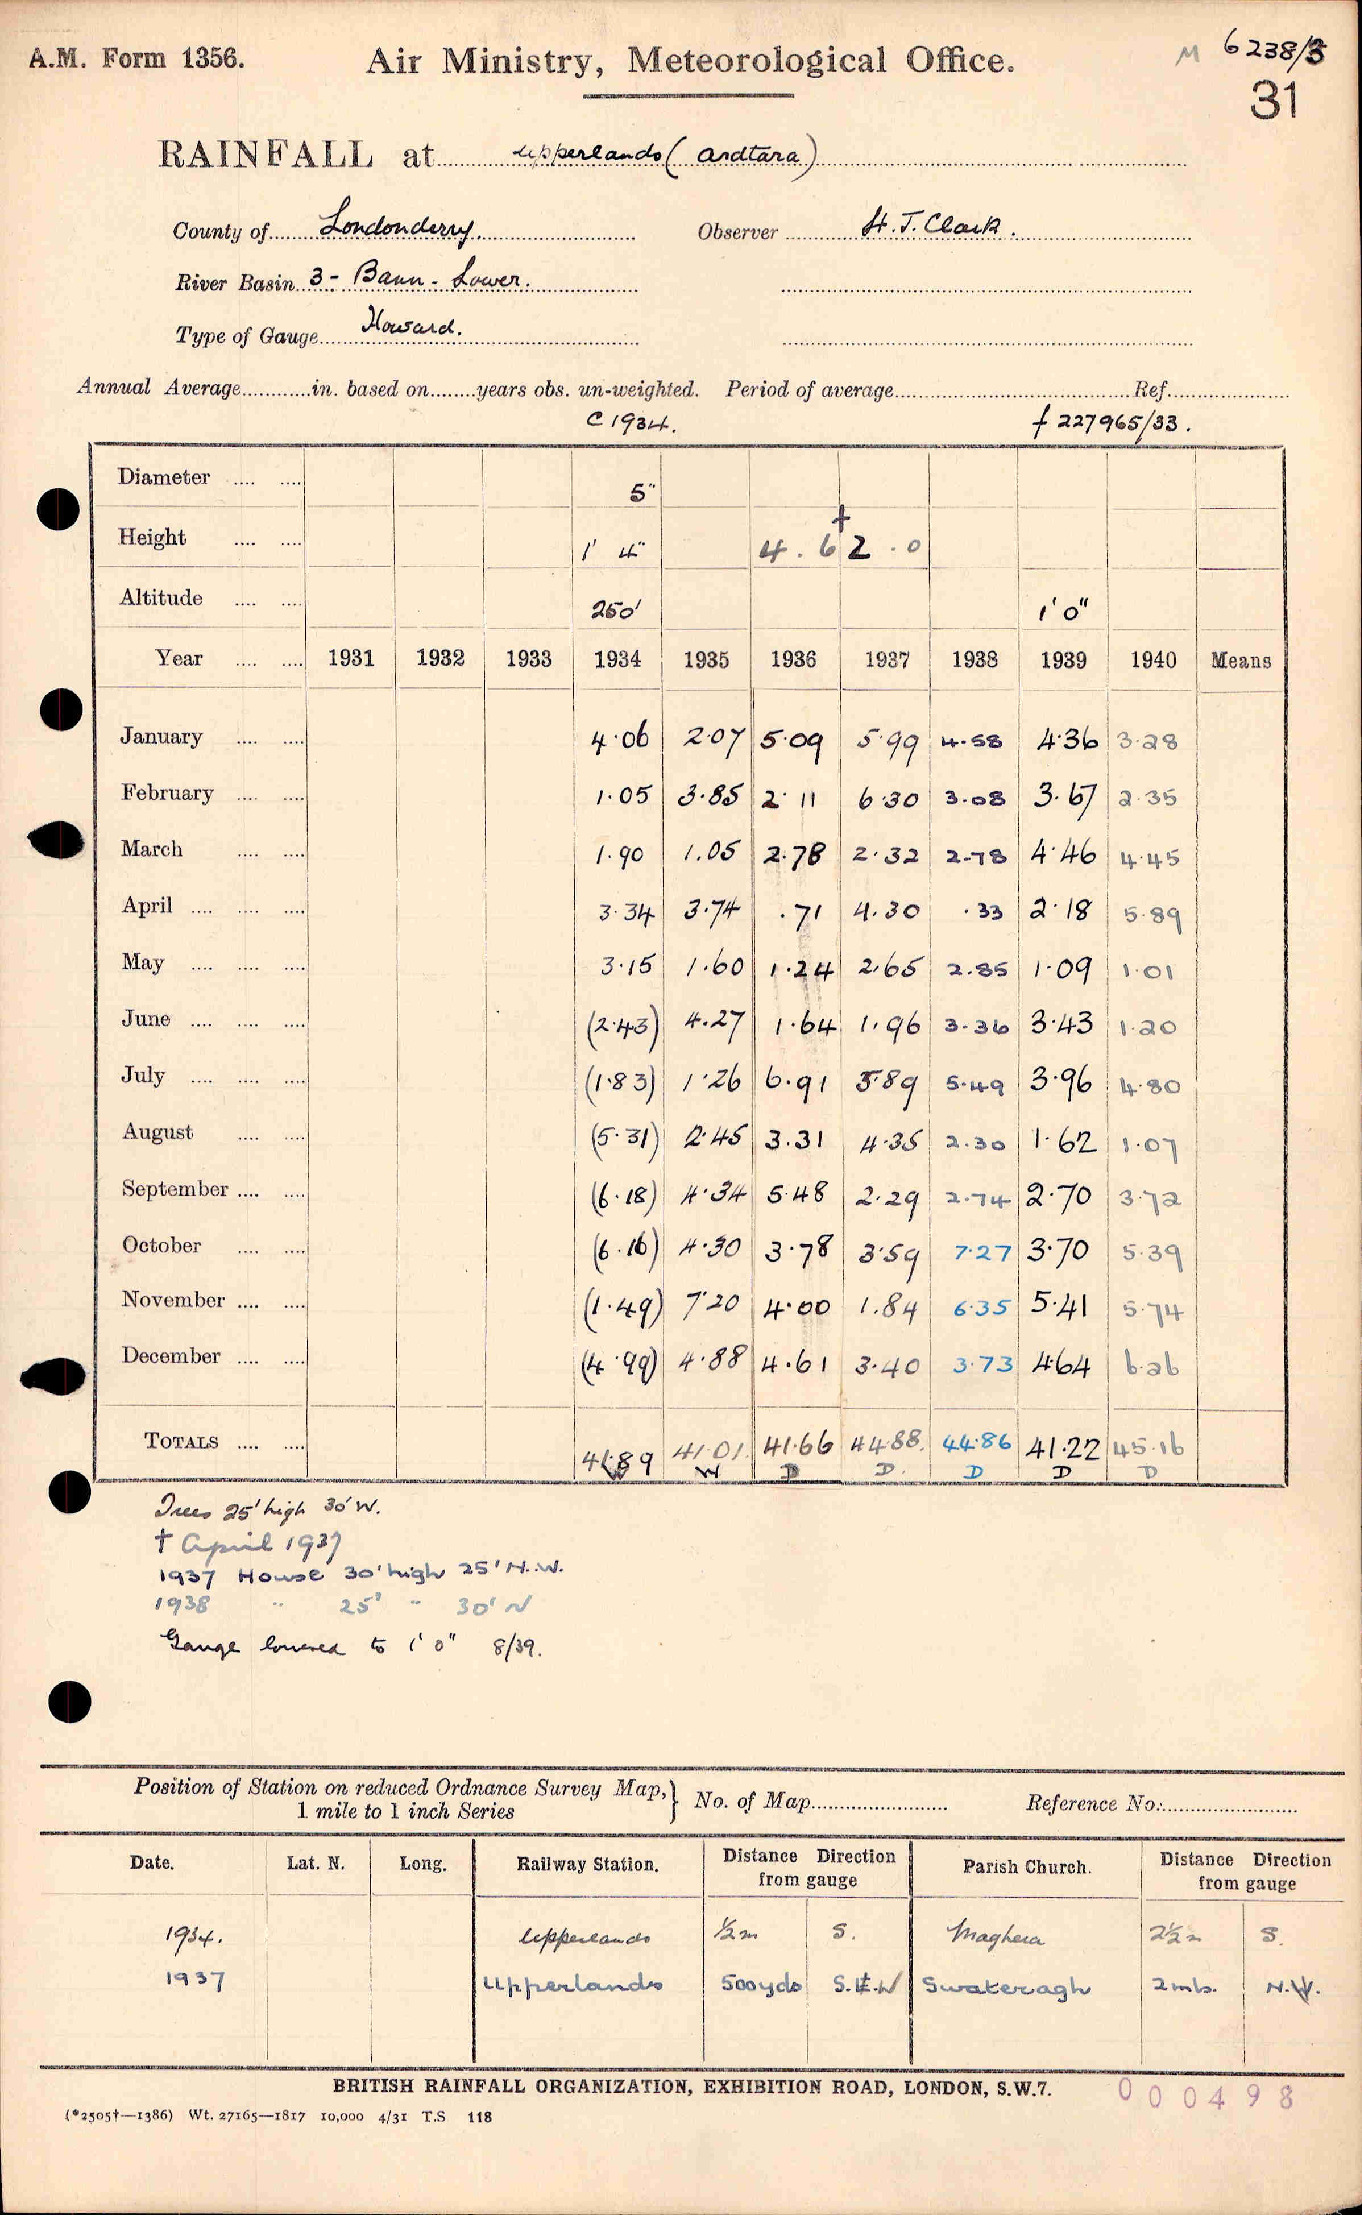 A.M. Form 1356.
Air Ministry, Meteorological Office.
M 6238/3
31
RAINFALL at Upperlands (Ardtara)
County of Londonderry. Observer H. J. Clark.
River Basin 3- Bann - Lower.
Type of Gauge Howard.
Annual Average............in. based on........years obs. un-weighted. Period of average........................Ref.....................
C 1934. f 227965/33.
Diameter .... .... 5"
Height .... .... 1' 4" 4.6 † 2.0
Altitude .... .... 250' 1' 0"
Year .... .... 1931 1932 1933 1934 1935 1936 1937 1938 1939 1940 Means
January .... .... 4.06 2.07 5.09 5.99 4.58 4.36 3.28
February .... .... 1.05 3.85 2.11 6.30 3.08 3.67 2.35
March .... .... 1.90 1.05 2.78 2.32 2.78 4.46 4.45
April .... .... .... 3.34 3.74 .71 4.30 .33 2.18 5.89
May .... .... .... 3.15 1.60 1.24 2.65 2.85 1.09 1.01
June .... .... .... (2.43) 4.27 1.64 1.96 3.36 3.43 1.20
July .... .... .... (1.83) 1.26 6.91 5.89 5.49 3.96 4.80
August .... .... (5.31) 2.45 3.31 4.35 2.30 1.62 1.07
September .... .... (6.18) 4.34 5.48 2.29 2.74 2.70 3.72
October .... .... (6.16) 4.30 3.78 3.59 7.27 3.70 5.39
November .... .... (1.49) 7.20 4.00 1.84 6.35 5.41 5.74
December .... .... (4.99) 4.88 4.61 3.40 3.73 4.64 6.26
TOTALS .... .... 41.89 41.01 41.66 44.88 44.86 41.22 45.16
W W D D. D D D
Trees 25' high 30' W.
† April 1937
1937 House 30' high 25' N.W.
1938 " 25' " 30' N
Gauge lowered to 1' 0" 8/39.
Position of Station on reduced Ordnance Survey Map, } No. of Map........................ Reference No:........................
1 mile to 1 inch Series
Date. Lat. N. Long. Railway Station. Distance Direction from gauge Parish Church. Distance Direction from gauge
1934. Upperlands ½m S. Maghera 2½m S.
1937 Upperlands 500yds Swateragh 2mls. N.W.
BRITISH RAINFALL ORGANIZATION, EXHIBITION ROAD, LONDON, S.W.7.
000498
(*2505†—1386) Wt. 27165—1817 10,000 4/31 T.S 118